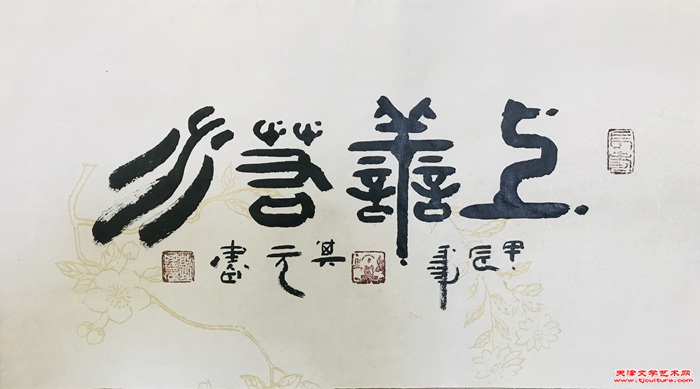 上善若水
甲辰年 其元書
天津文学艺术网
www.tjculture.com